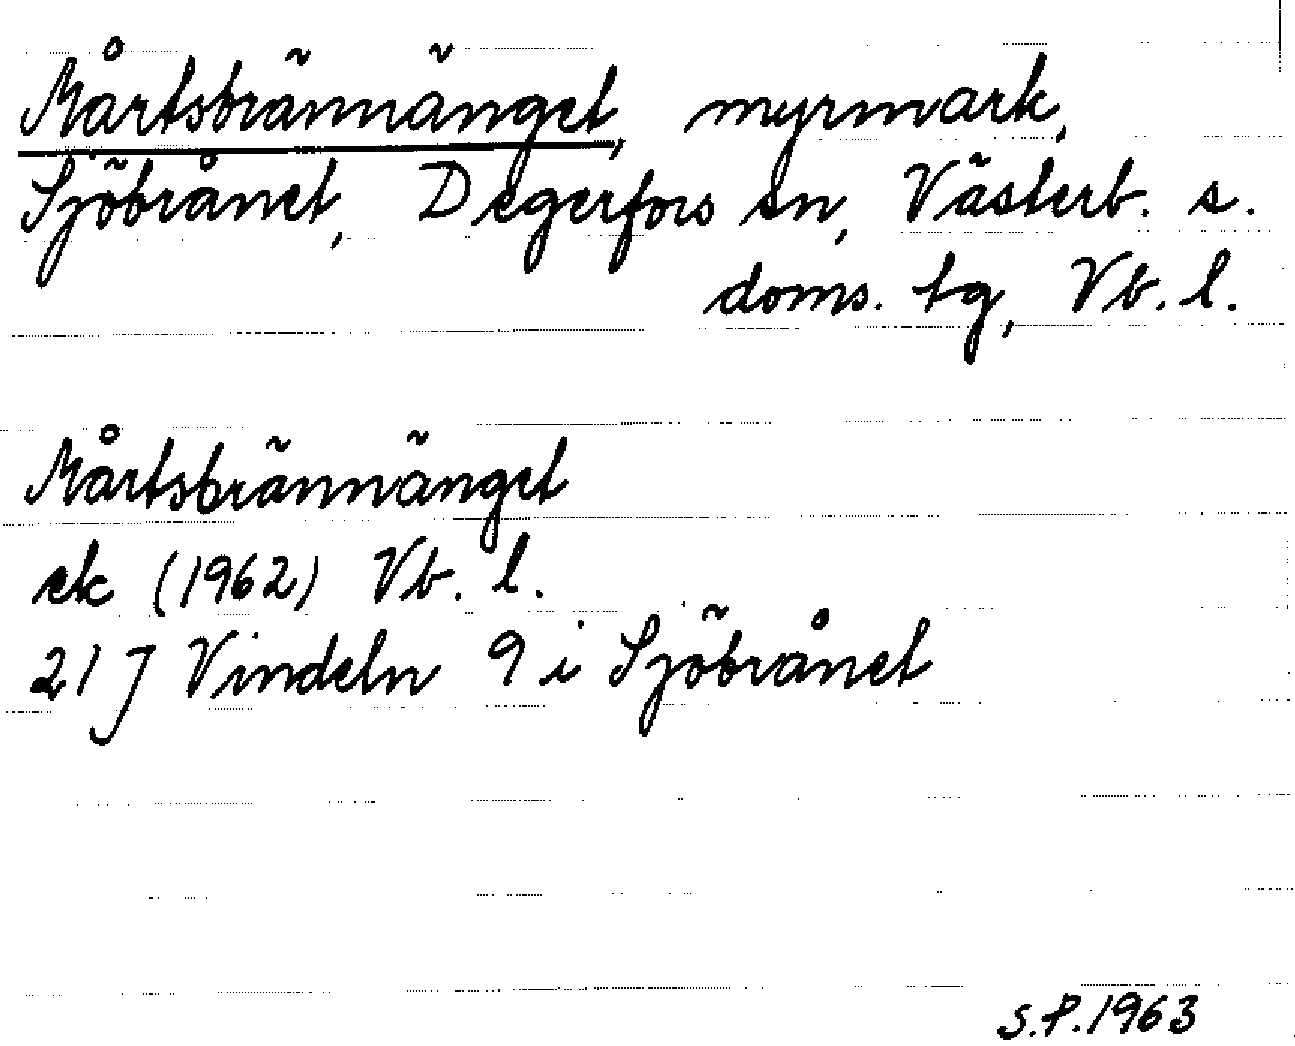 Mårtsbrännänget, myrmark,
Sjöbrånet, Degerfors sn, Västerb. s.
doms. tg, Vb. l.
Mårtsbrännänget
ek (1962) Vb. l.
21 J Vindeln 9 i Sjöbrånet
S.P.1963